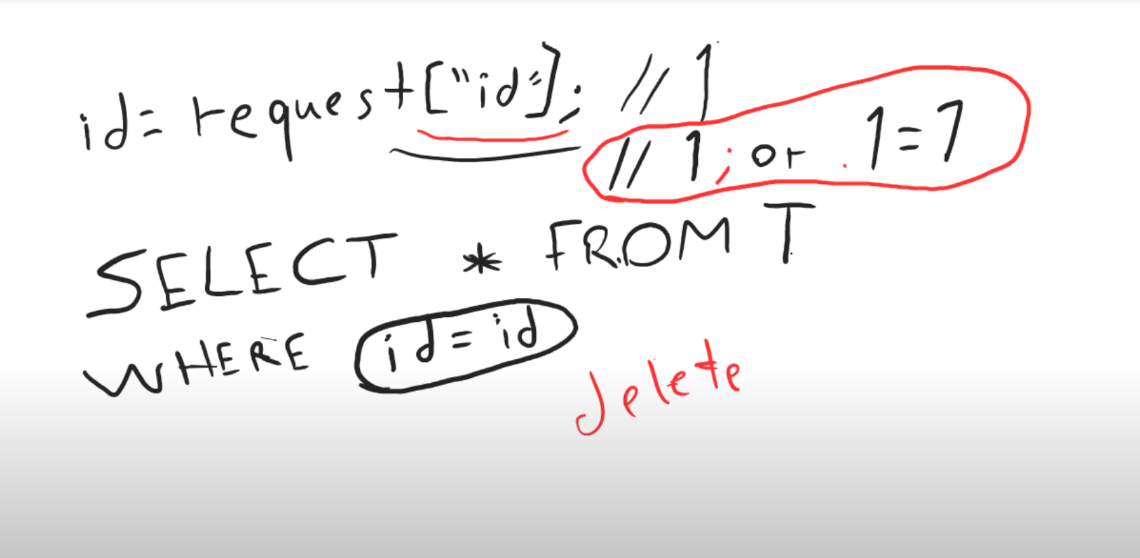 id= request["id"]; // 1
// 1; or 1=1
SELECT * FROM T
WHERE id=id
delete